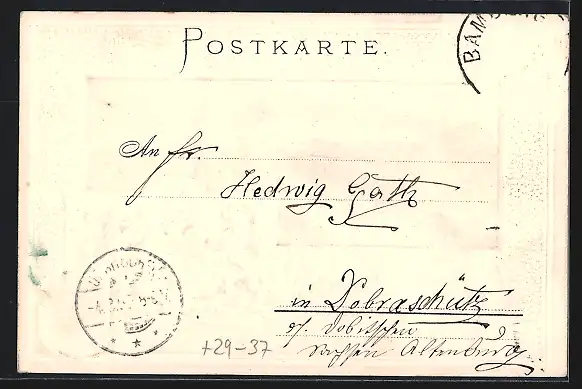 POSTKARTE.
BAMBERG
An Fr.
Hedwig Gath
in Dobraschütz
p/. Dobitschen
Sachsen Altenburg
+29-37